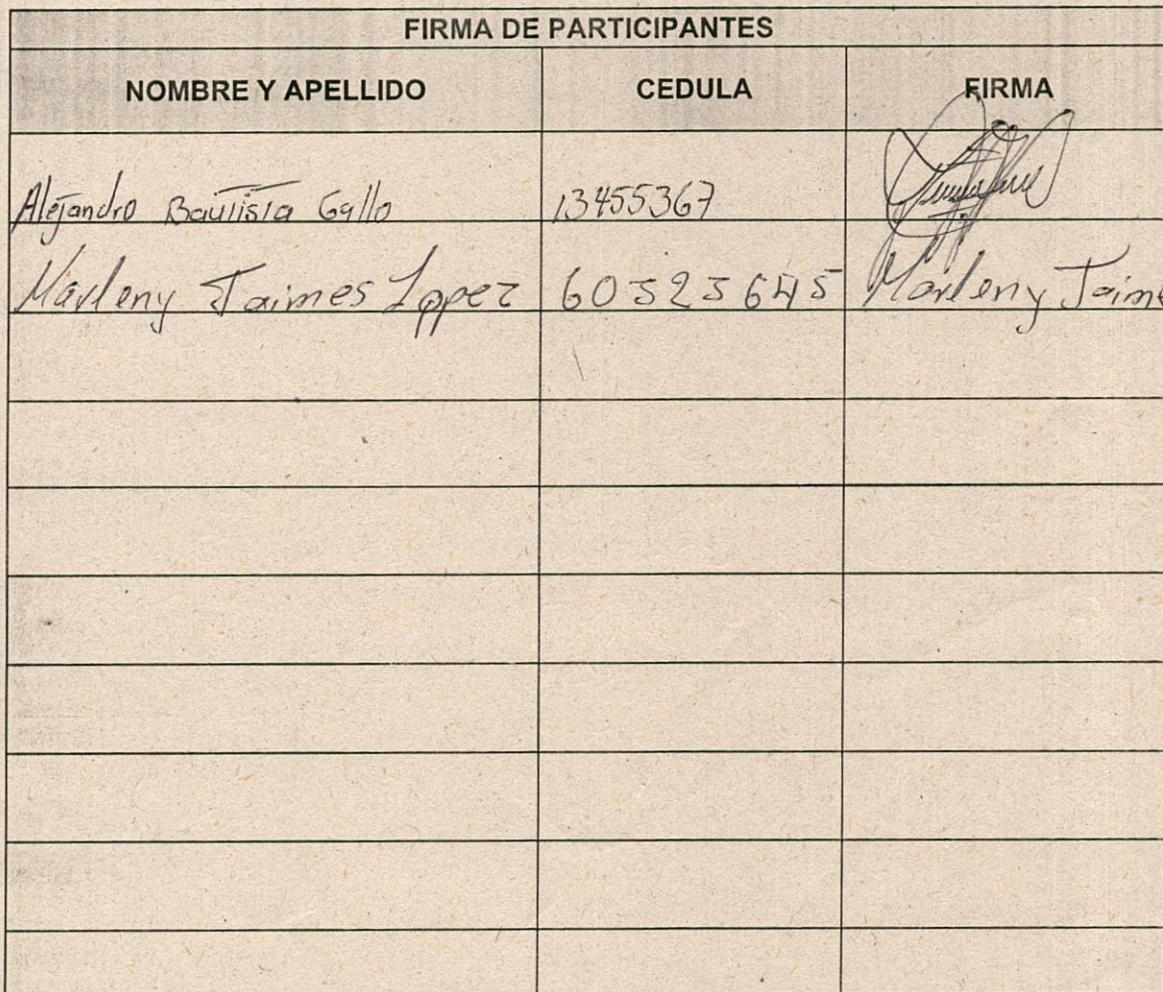 FIRMA DE PARTICIPANTES
NOMBRE Y APELLIDO CEDULA FIRMA
Alejandro Bautista Gallo 13455367
Marleny Jaimes Lopez 60323645 Marleny Jaime